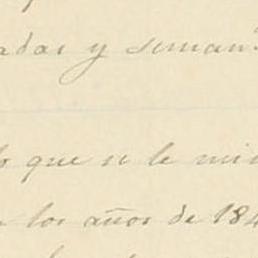 adas y seman
que se le
los años de 184